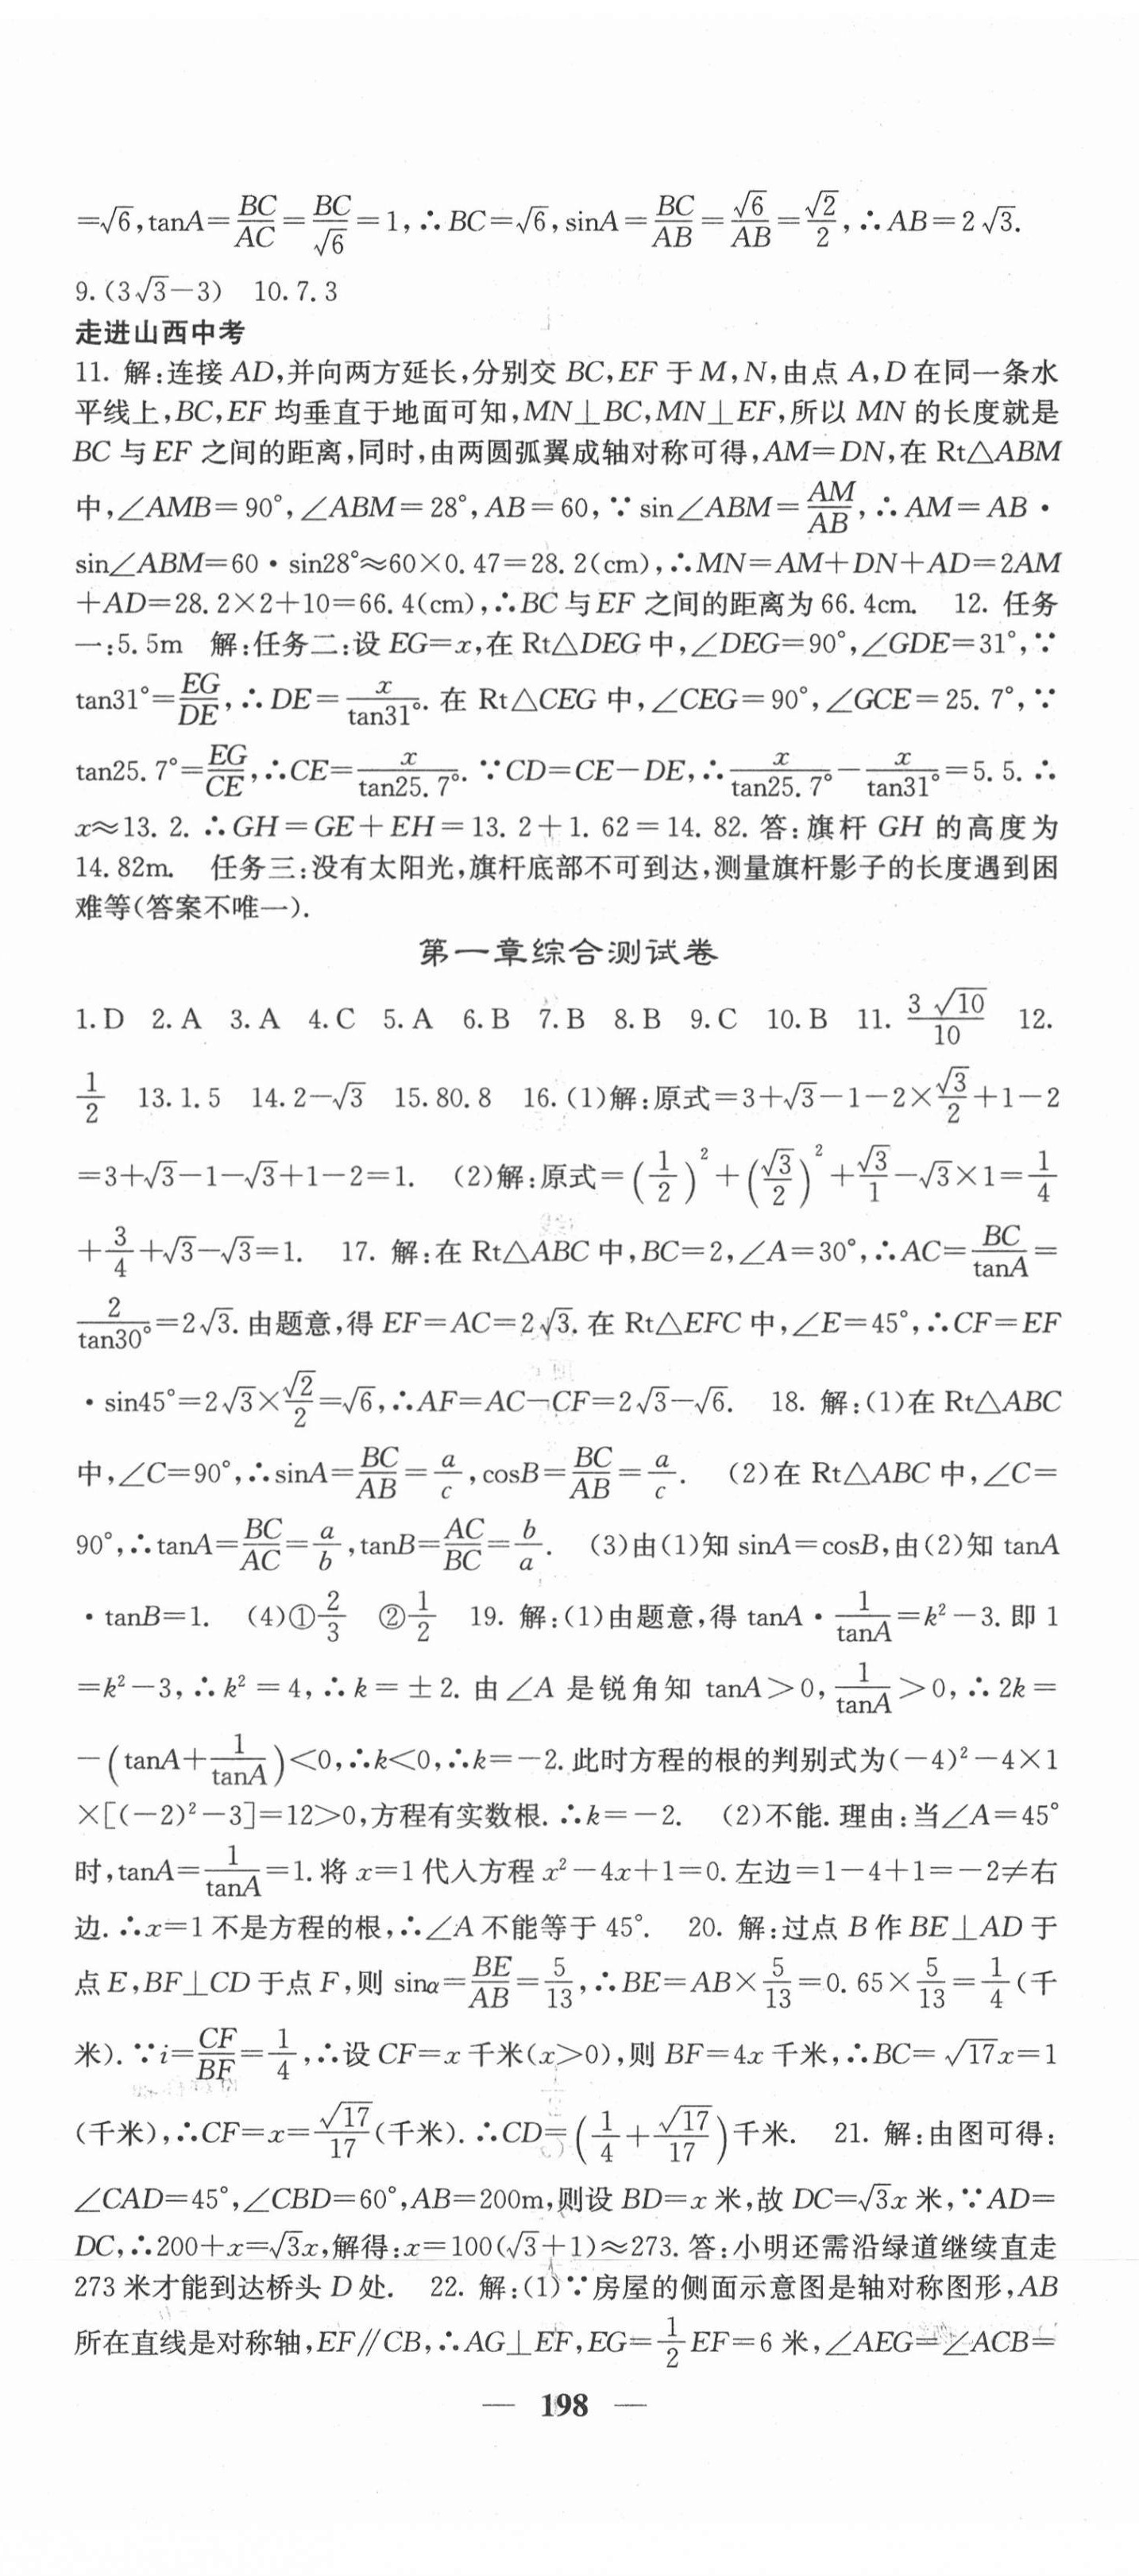 =√6,tanA=BC/AC=BC/√6=1,∴BC=√6,sinA=BC/AB=√6/AB=√2/2,∴AB=2√3.
9.(3√3-3) 10.7.3
走进山西中考
11. 解:连接 AD,并向两方延长,分别交 BC,EF 于 M,N,由点 A,D 在同一条水
平线上,BC,EF 均垂直于地面可知,MN⊥BC,MN⊥EF,所以 MN 的长度就是
BC 与 EF 之间的距离,同时,由两圆弧翼成轴对称可得,AM=DN,在 Rt△ABM
中,∠AMB=90°,∠ABM=28°,AB=60,∵sin∠ABM=AM/AB,∴AM=AB·
sin∠ABM=60·sin28°≈60×0.47=28.2(cm),∴MN=AM+DN+AD=2AM
+AD=28.2×2+10=66.4(cm),∴BC 与 EF 之间的距离为 66.4cm. 12. 任务
一:5.5m 解:任务二:设 EG=x,在 Rt△DEG 中,∠DEG=90°,∠GDE=31°,∵
tan31°=EG/DE,∴DE=x/tan31°. 在 Rt△CEG 中,∠CEG=90°,∠GCE=25.7°,∵
tan25.7°=EG/CE,∴CE=x/tan25.7°.∵CD=CE-DE,∴x/tan25.7°-x/tan31°=5.5.∴
x≈13.2.∴GH=GE+EH=13.2+1.62=14.82. 答:旗杆 GH 的高度为
14.82m. 任务三:没有太阳光,旗杆底部不可到达,测量旗杆影子的长度遇到困
难等(答案不唯一).
第一章综合测试卷
1.D 2.A 3.A 4.C 5.A 6.B 7.B 8.B 9.C 10.B 11. 3√10/10 12.
1/2 13.1.5 14.2-√3 15.80.8 16.(1)解:原式=3+√3-1-2×√3/2+1-2
=3+√3-1-√3+1-2=1. (2)解:原式=(1/2)²+(√3/2)²+√3/1-√3×1=1/4
+3/4+√3-√3=1. 17. 解:在 Rt△ABC 中,BC=2,∠A=30°,∴AC=BC/tanA=
2/tan30°=2√3.由题意,得 EF=AC=2√3.在 Rt△EFC 中,∠E=45°,∴CF=EF
·sin45°=2√3×√2/2=√6,∴AF=AC-CF=2√3-√6. 18. 解:(1)在 Rt△ABC
中,∠C=90°,∴sinA=BC/AB=a/c,cosB=BC/AB=a/c. (2)在 Rt△ABC 中,∠C=
90°,∴tanA=BC/AC=a/b,tanB=AC/BC=b/a. (3)由(1)知 sinA=cosB,由(2)知 tanA
·tanB=1. (4)①2/3 ②1/2 19. 解:(1)由题意,得 tanA·1/tanA=k²-3.即 1
=k²-3,∴k²=4,∴k=±2. 由∠A 是锐角知 tanA>0,1/tanA>0,∴2k=
-(tanA+1/tanA)<0,∴k<0,∴k=-2.此时方程的根的判别式为(-4)²-4×1
×[(-2)²-3]=12>0,方程有实数根.∴k=-2. (2)不能.理由:当∠A=45°
时,tanA=1/tanA=1.将 x=1 代入方程 x²-4x+1=0.左边=1-4+1=-2≠右
边.∴x=1 不是方程的根,∴∠A 不能等于 45°. 20. 解:过点 B 作 BE⊥AD 于
点 E,BF⊥CD 于点 F,则 sinα=BE/AB=5/13,∴BE=AB×5/13=0.65×5/13=1/4(千
米).∵i=CF/BF=1/4,∴设 CF=x 千米(x>0),则 BF=4x 千米,∴BC=√17x=1
(千米),∴CF=x=√17/17(千米).∴CD=(1/4+√17/17)千米. 21. 解:由图可得:
∠CAD=45°,∠CBD=60°,AB=200m,则设 BD=x 米,故 DC=√3x 米,∵AD=
DC,∴200+x=√3x,解得:x=100(√3+1)≈273.答:小明还需沿绿道继续直走
273 米才能到达桥头 D 处. 22. 解:(1)∵房屋的侧面示意图是轴对称图形,AB
所在直线是对称轴,EF∥CB,∴AG⊥EF,EG=1/2EF=6 米,∠AEG=∠ACB=
— 198 —